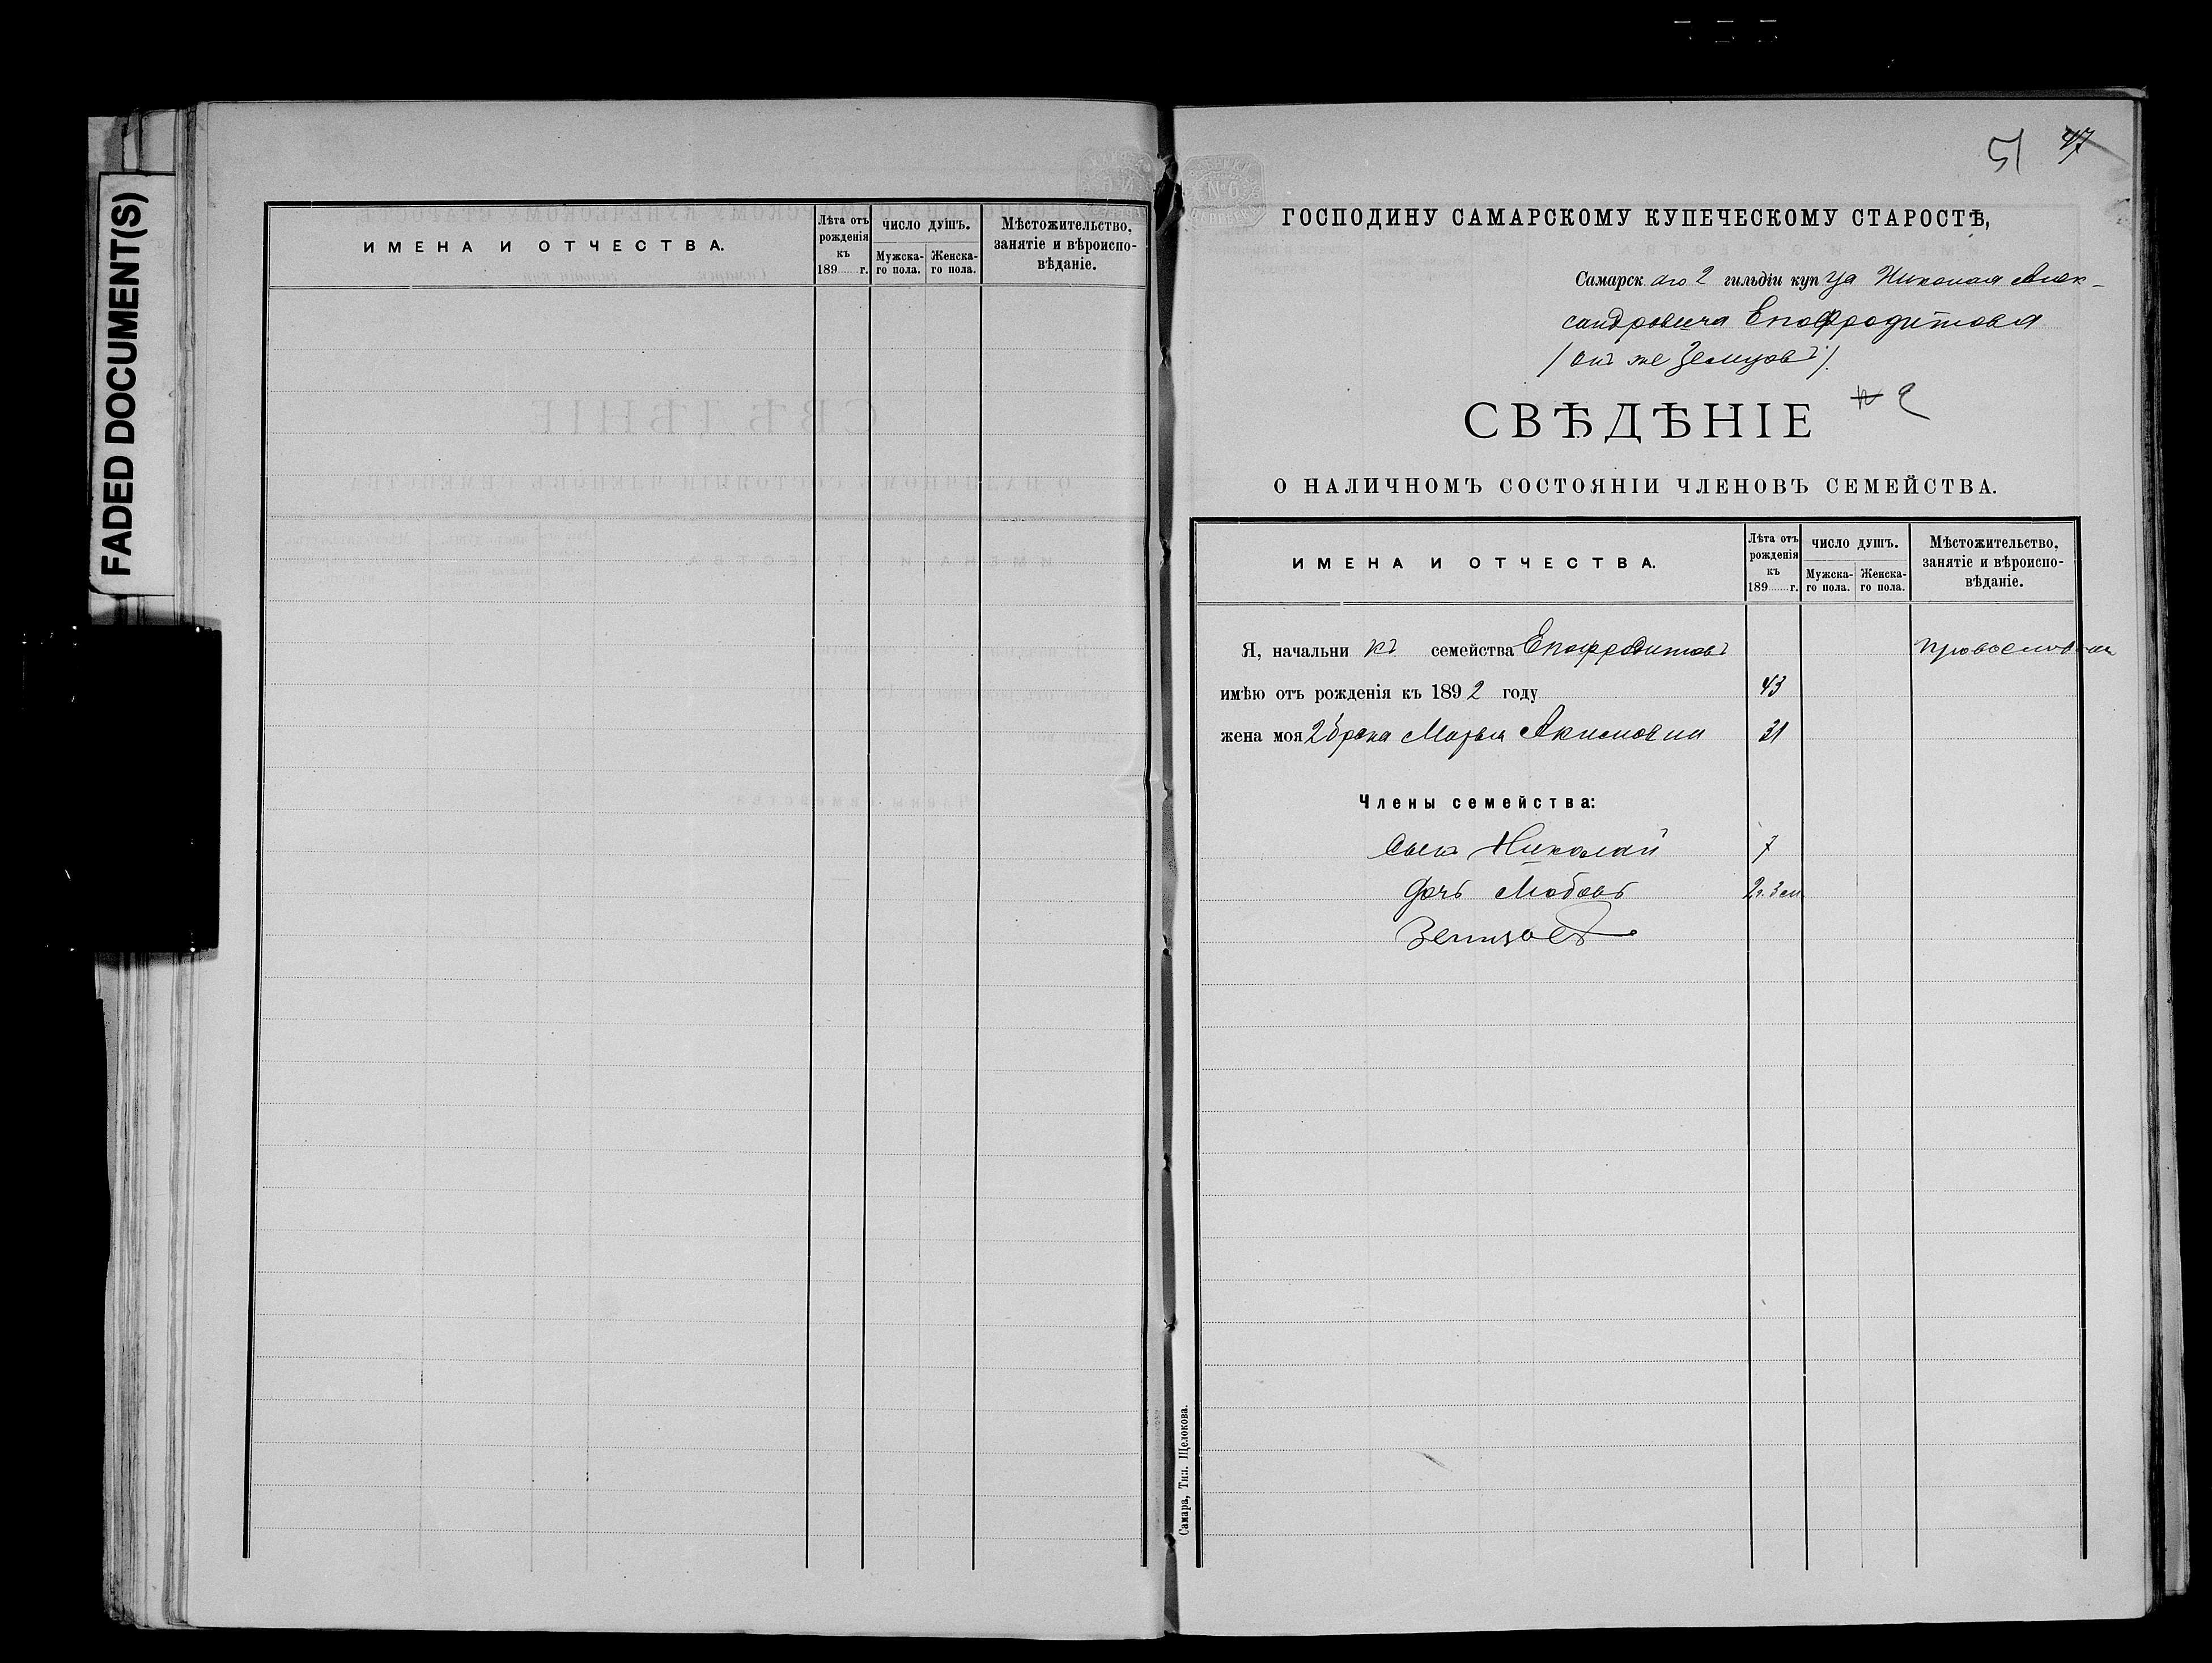 FADED DOCUMENT(S)
ИМЕНА И ОТЧЕСТВА.
Лѣта отъ рожденія къ 189 г.
ЧИСЛО ДУШЪ.
Мужска-го пола.
Женска-го пола.
Мѣстожительство,
занятіе и вѣроиспо-
вѣданіе.
51 47
№6
ГОСПОДИНУ САМАРСКОМУ КУПЕЧЕСКОМУ СТАРОСТѢ,
Самарскаго 2 гильдіи купца Николая Алек-
сандровича Епафродитова
/ онъ же Земцовъ /.
СВѢДѢНІЕ
О НАЛИЧНОМЪ СОСТОЯНІИ ЧЛЕНОВЪ СЕМЕЙСТВА.
ИМЕНА И ОТЧЕСТВА.
Лѣта отъ рожденія къ 189 г.
ЧИСЛО ДУШЪ.
Мужска-го пола.
Женска-го пола.
Мѣстожительство,
занятіе и вѣроиспо-
вѣданіе.
Я, начальникъ семейства Епафродитовъ
имѣю отъ рожденія къ 1892 году 43
жена моя 2 брака Марья Акимовна 31
Члены семейства:
Сынъ Николай 7
Дочь Любовь 2 г. 3 м
Земцовъ
Самара, Тип. Щелокова.